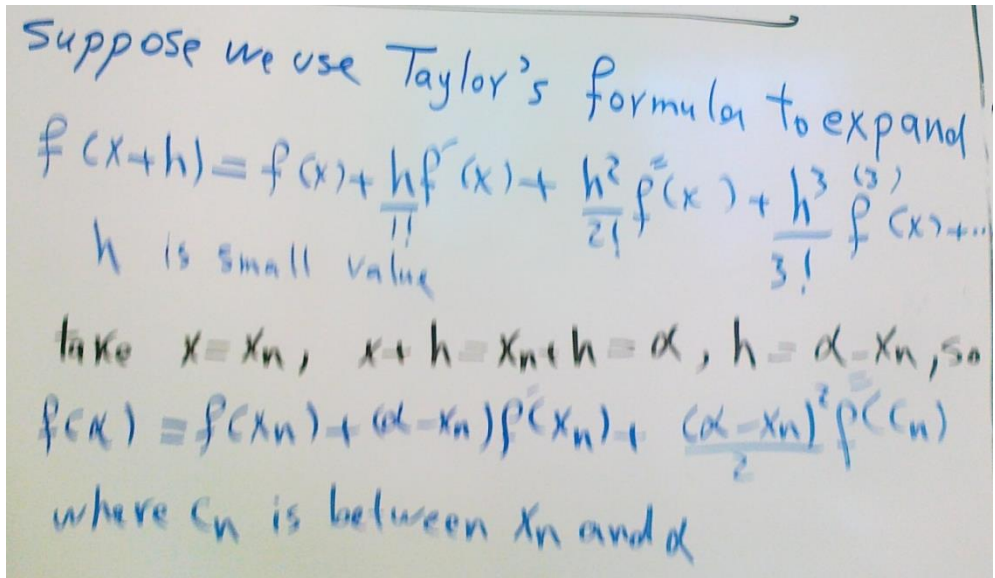 Suppose we use Taylor's formula to expand
f(x+h) = f(x) + h/1! f'(x) + h²/2! f''(x) + h³/3! f⁽³⁾(x) + ...
h is small value
take x = xₙ, x + h = xₙ + h = α, h = α - xₙ, so
f(α) = f(xₙ) + (α - xₙ) f'(xₙ) + (α - xₙ)²/2 f''(cₙ)
where cₙ is between xₙ and α